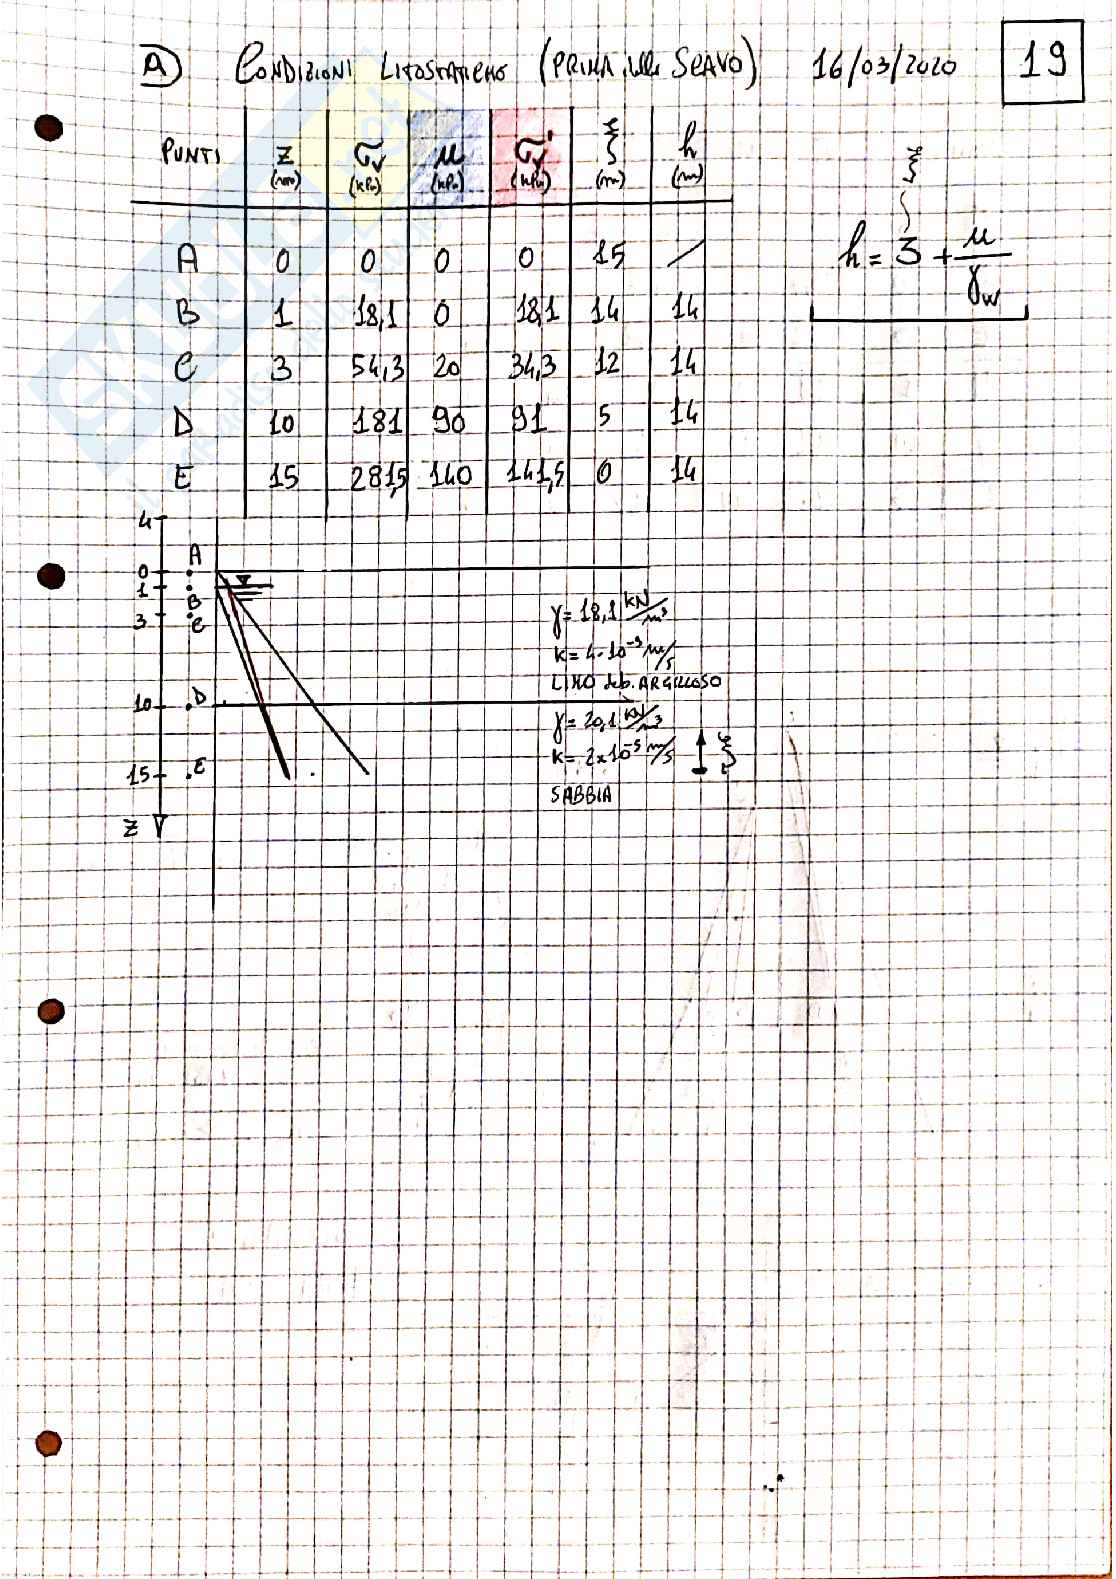 A) CONDIZIONI LITOSTATICHE (PRIMA dello SCAVO) 16/03/2020 19
PUNTI z (m) σv (kPa) u (kPa) σv' (kPa) ξ (m) h (m)
A 0 0 0 0 15 /
B 1 18,1 0 18,1 14 14
C 3 54,3 20 34,3 12 14
D 10 181 90 91 5 14
E 15 281,5 140 141,5 0 14
ξ
h = ξ + u/γw
4
A
0
1
B
3 C
γ = 18,1 kN/m³
LIMO deb. ARGILLOSO
10 D
γ = 20,1 kN/m³
k = 2x10⁻⁵ m/s
ξ
15 E
SABBIA
z